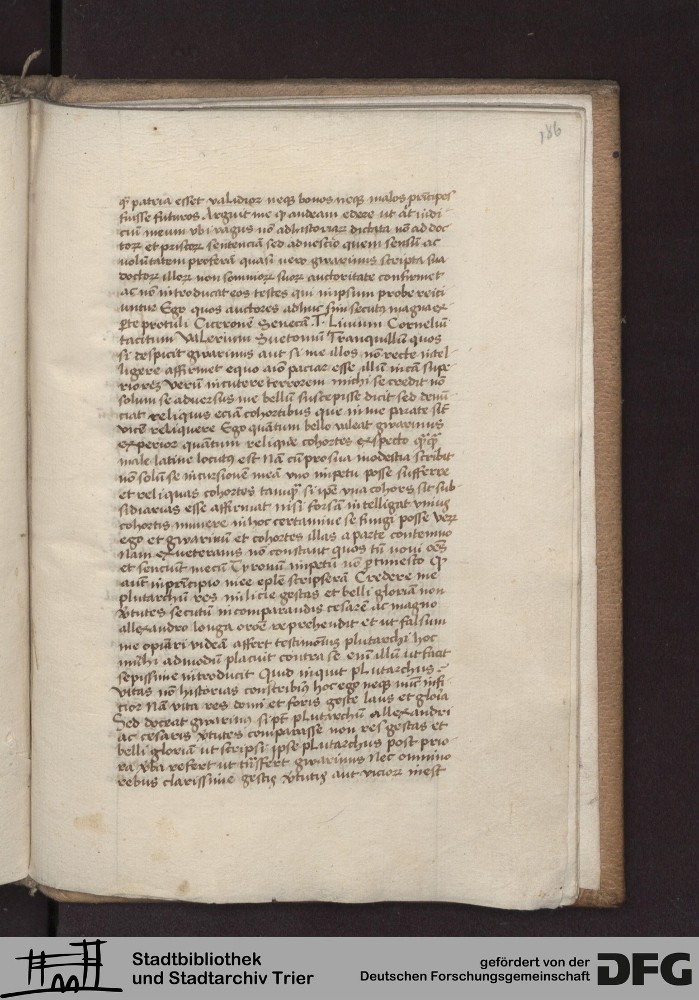 186
qꝫ patria esset validior neqꝫ bonos neqꝫ malos prīcipes
fuisse futuros Arguit me qꝫ audeam edere ut ait iudi-
ciū meum vbi vagus nō ad historiar dictata nō ad doc
toꝝ et priscoꝝ sentenciā sed ad nescio quem sensū ac
voluntatem proferā quasi vero gwarinus scripta sua
doctoꝝ illoꝝ non somnioꝝ suoꝝ auctoritate confirmet
ac nō introducat eos testes qui in ipsum probe reici
untur Ego quos auctores adhuc sum secutꝰ magna ex
ꝑte protuli Ciceronē Senecā T. Liuium Corneliū
tacitum Valerium Suetonium Tranquillū quos
si despicit gwarinus aut si me illos nō recte intel-
ligere affirmet equo aīo paciar esse illū in eā supe
riorēꝫ Verū incutere terrorem michi se credit nō
solum se aduersus me bellū suscepisse dicit sed denū
ciat reliquis eciā cohortibus que in me parate sūt
vicē reliquere Ego quātum bello valeat gwarinus
experior quātum relique cohortes exspecto qꝫqꝫ
male latine locutꝰ est Nā cū pro sua modestia scribit
nō solū se incursionē meā vno impetu posse sufferre
et reliquas cohortes tamqꝫ si ipē vna cohors sit sub-
sidiarias esse affirmat nisi forsan intelligat vnius
cohortis munere in hoc certamine se fungi posse Veꝝ
ego et gwarinū et cohortes illas a parte contemno
Nam ex veteranis nō constant quos tū noui oēs
et senciunt mecū Tyronū impetū nō ꝑtimesco Qꝫ
autē in prīcipio mee epłe scripserā Credere me
plutarchū res milicie gestas et belli gloriā non
v̓tutes secutū in comparandis cesarē ac magno
allexandro longa or̄oē reprehendit et ut falsum
me opinari videā affert testimoniū plutarchi hoc
michi admodū placuit contra se enī illū ut facit
sepissime introducit Quid inquit pLutarchus
vitas nō historias conscribimꝰ hoc ego neqꝫ nūc infi-
cior Nā vita res domi et foris geste laus et glōia
Sed doceat gwarinus si pt̄ pLutarchū allexandri
ac cesaris v̓tutes comparasse non res gestas et
belli gloriā ut scripsi ipse pLutarchus post prio-
ra v̓ba refert ut trāsfert gwarinus Nec omnino
rebus clarissime gestis v̓tutis aut vicioꝝ inest
Stadtbibliothek
und Stadtarchiv Trier
gefördert von der
Deutschen Forschungsgemeinschaft
DFG